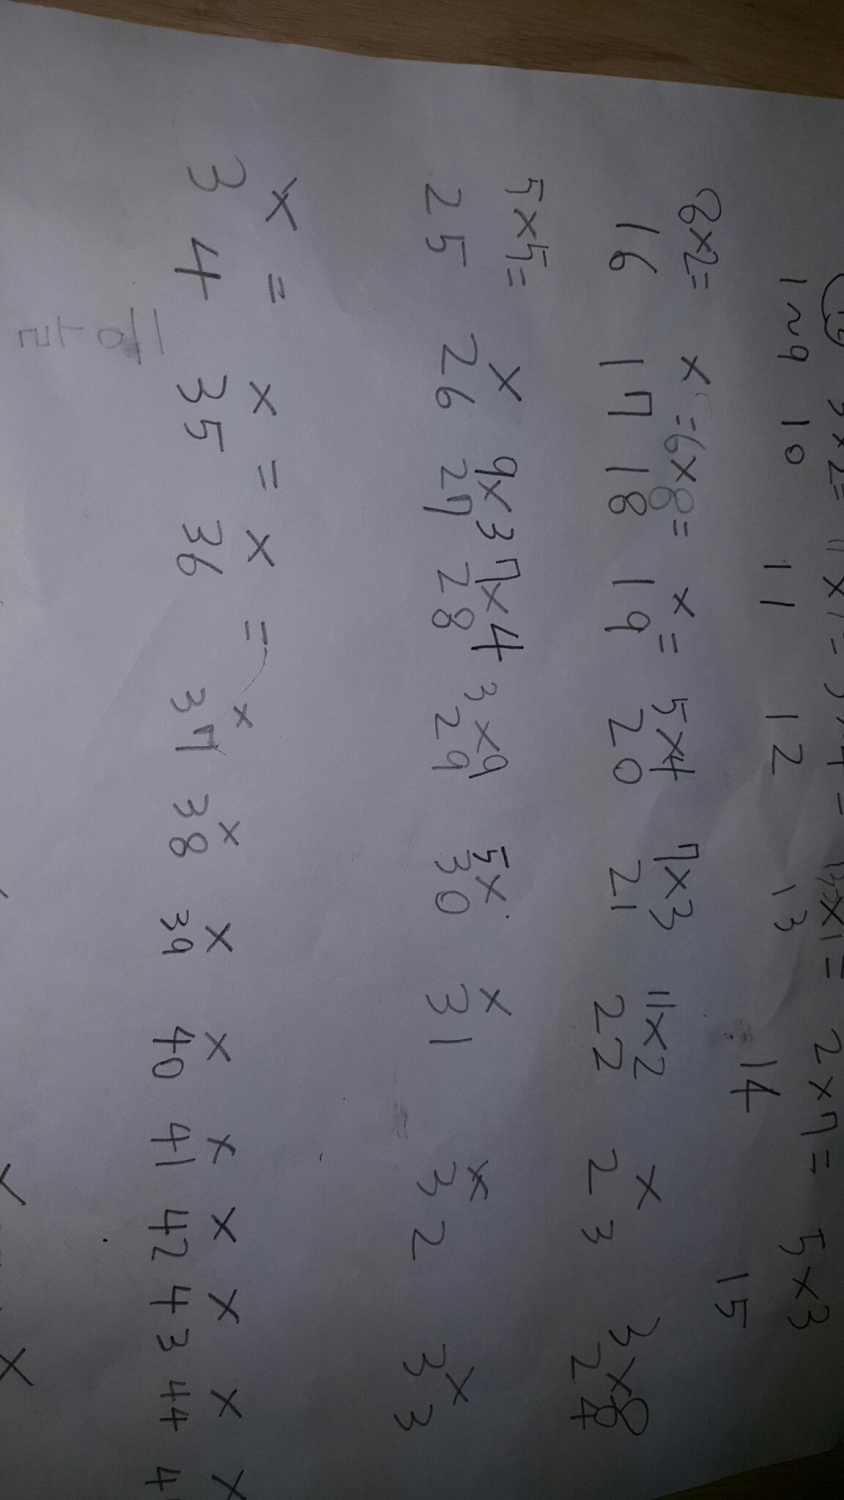 2×7= 5×3
1~9 10 11 12 13 14 15
8×2= × =6×8= × = 5×4 7×3 11×2 × 3×8
16 17 18 19 20 21 22 23 24
5×5= × 9×3 7×4 3×9 5× × × ×
25 26 27 28 29 30 31 32 33
× = × = × = × × × × × × × × ×
34 35 36 37 38 39 40 41 42 43 44